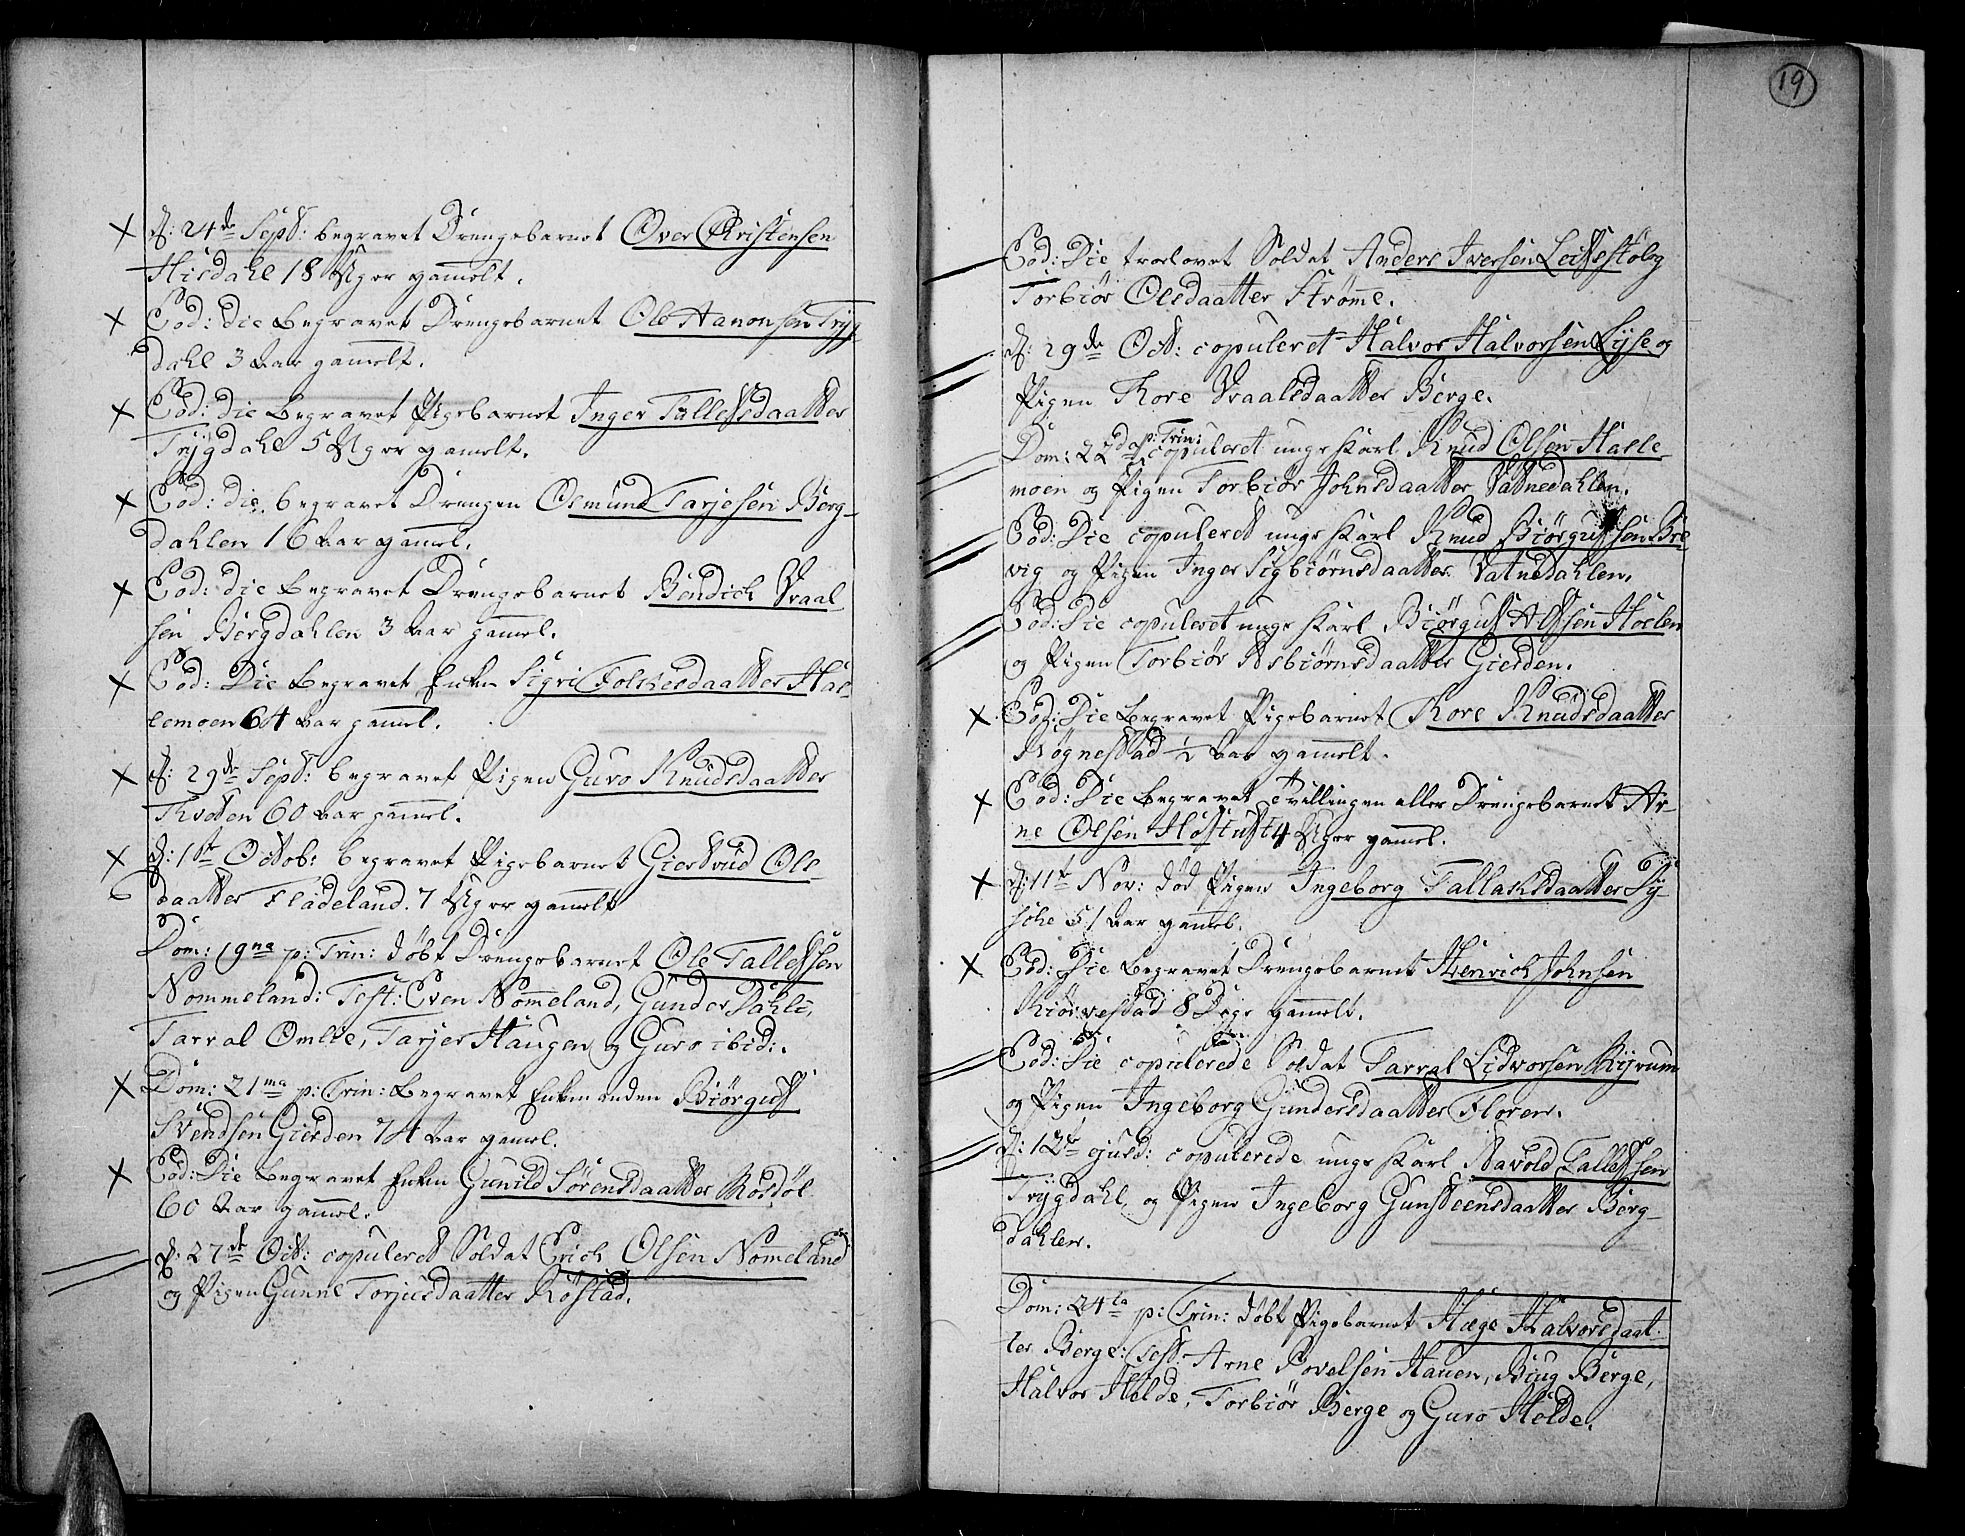 D: 24de Sept: begravet Drengebarnet Over Christensen
Hisdahl 18 Uger gammelt.
Eod: die begravet Drengebarnet Ole Hanonsen Tryg
dahl 3 Aar gammelt.
Eod: die begravet Pigebarnet Inger Tallefsdaatter
Trygdahl 5 Uger gammelt.
Eod: die begravet Drengen Osmund Tarjesen Berg-
dahlen 16 Aar gammel.
Eod: die begravet Drengebarnet Bendich Vraal
sen Bergdahlen 3 Aar gammel.
Eod: Die begravet Enken Sigri Folkesdaatter Hal-
lemoen 64 Aar gammel.
D: 29de Sept: begravet Pigen Guro Knudsdaatter
60 Aar gammel.
D: 1ste Octob: begravet Pigebarnet Giertrud Ols-
daatter Fladeland. 7 Uger gammelt
Dom: 19na p: Trin: døbt Drengebarnet Ole Tallefsen
Nommeland: Test: Even Nommeland, Gunder Dahle,
Tarral Omlie, Tarjer Haugen og Guro ibid:.
Dom: 21ma p: Trin: begravet Enkemanden Biørguf
Svendsen Gierden 74 Aar gammel.
Eod: Die begravet Enken Gunild Sørensdaatter Rosdøl
60 Aar gammel.
D: 27de Oct: copuleret Soldat Erich Olsen Nomeland
og Pigen Gunne Torjusdaatter Røstad.
19
Eod: Die trolovet Soldat Anders Iversen Leifsstøl og
Torbiør Olsdaatter Strømme.
D: 29de Oct: copuleret Halvor Halvorsen Lyse og
Pigen Thore Vraalsdaatter Berge.
Dom: 22da p: Trin: copuleret unge Karl Knud Olsen Halle-
moen og Pigen Torbiør Johnsdaatter Vatnedahlen.
Eod: Die copuleret unge Karl Knud Biørgufsen Bre-
vig og Pigen Inger Sigbiørnsdaatter Vatnedahlen.
Eod: Die copuleret unge Karl Biørguf Alfsen Hoslen
og Pigen Torbiør Asbiørnsdaatter Gierden.
Eod: Die begravet Pigebarnet Thore Knudsdaatter
Røgnestad 1/2 Aar gammelt.
Eod: Die begravet Tvillingen eller Drengebarnet Ar-
ne Olsen 4 Uger gammel.
D: 11te Nov: død Pigen Ingeborg Fallaksdaatter Ly-
51 Aar gammel.
Eod: Die begravet Drengebarnet Henrich Johnsen
Kiørvestad 8 Dage gammelt.
Eod: Die copulerede Soldat Tarral Lidvorsen Rysrum
og Pigen Ingeborg Gundersdaatter Floren.
D: 12te ejusd: copulerede unge Karl Navold Tallefsen
Trygdahl, og Pigen Ingeborg Gunsteensdaatter Berg-
dahlen.
Dom: 24ta p: Trin: døbt Pigebarnet Hæge Halvorsdaat-
ter Berge: Test: Arne Povelsen Hauen, Biug Berge,
Halvor Helde, Torbiør Berge og Guro Holde.